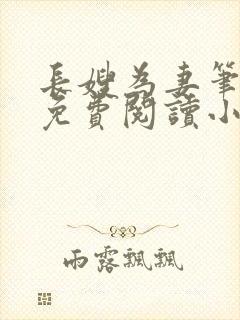 長嫂為妻筆
免費閱讀小
雨露飄飄